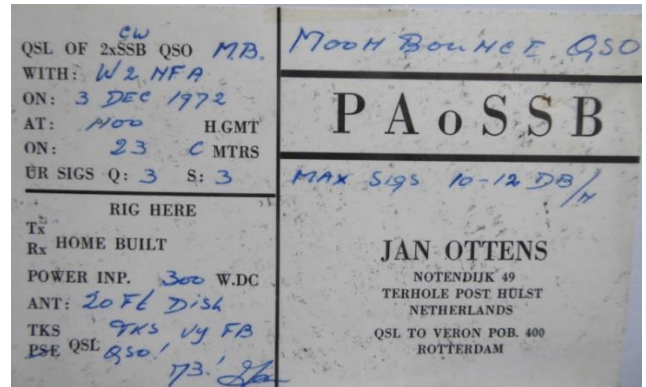 CW
QSL OF 2xSSB QSO M.B.
WITH: W2NFA
ON: 3 DEC 1972
AT: 1400 H.GMT
ON: 23 C MTRS
UR SIGS Q: 3 S: 3
RIG HERE
Tx
Rx HOME BUILT
POWER INP. 300 W.DC
ANT: 20 Ft Dish
TKS TKS Vy FB
PSE QSL QSO!
73! Jan
MOON BOUNCE QSO
PAoSSB
MAX SIGS 10-12 DB/N
JAN OTTENS
NOTENDIJK 49
TERHOLE POST HULST
NETHERLANDS
QSL TO VERON POB. 400
ROTTERDAM